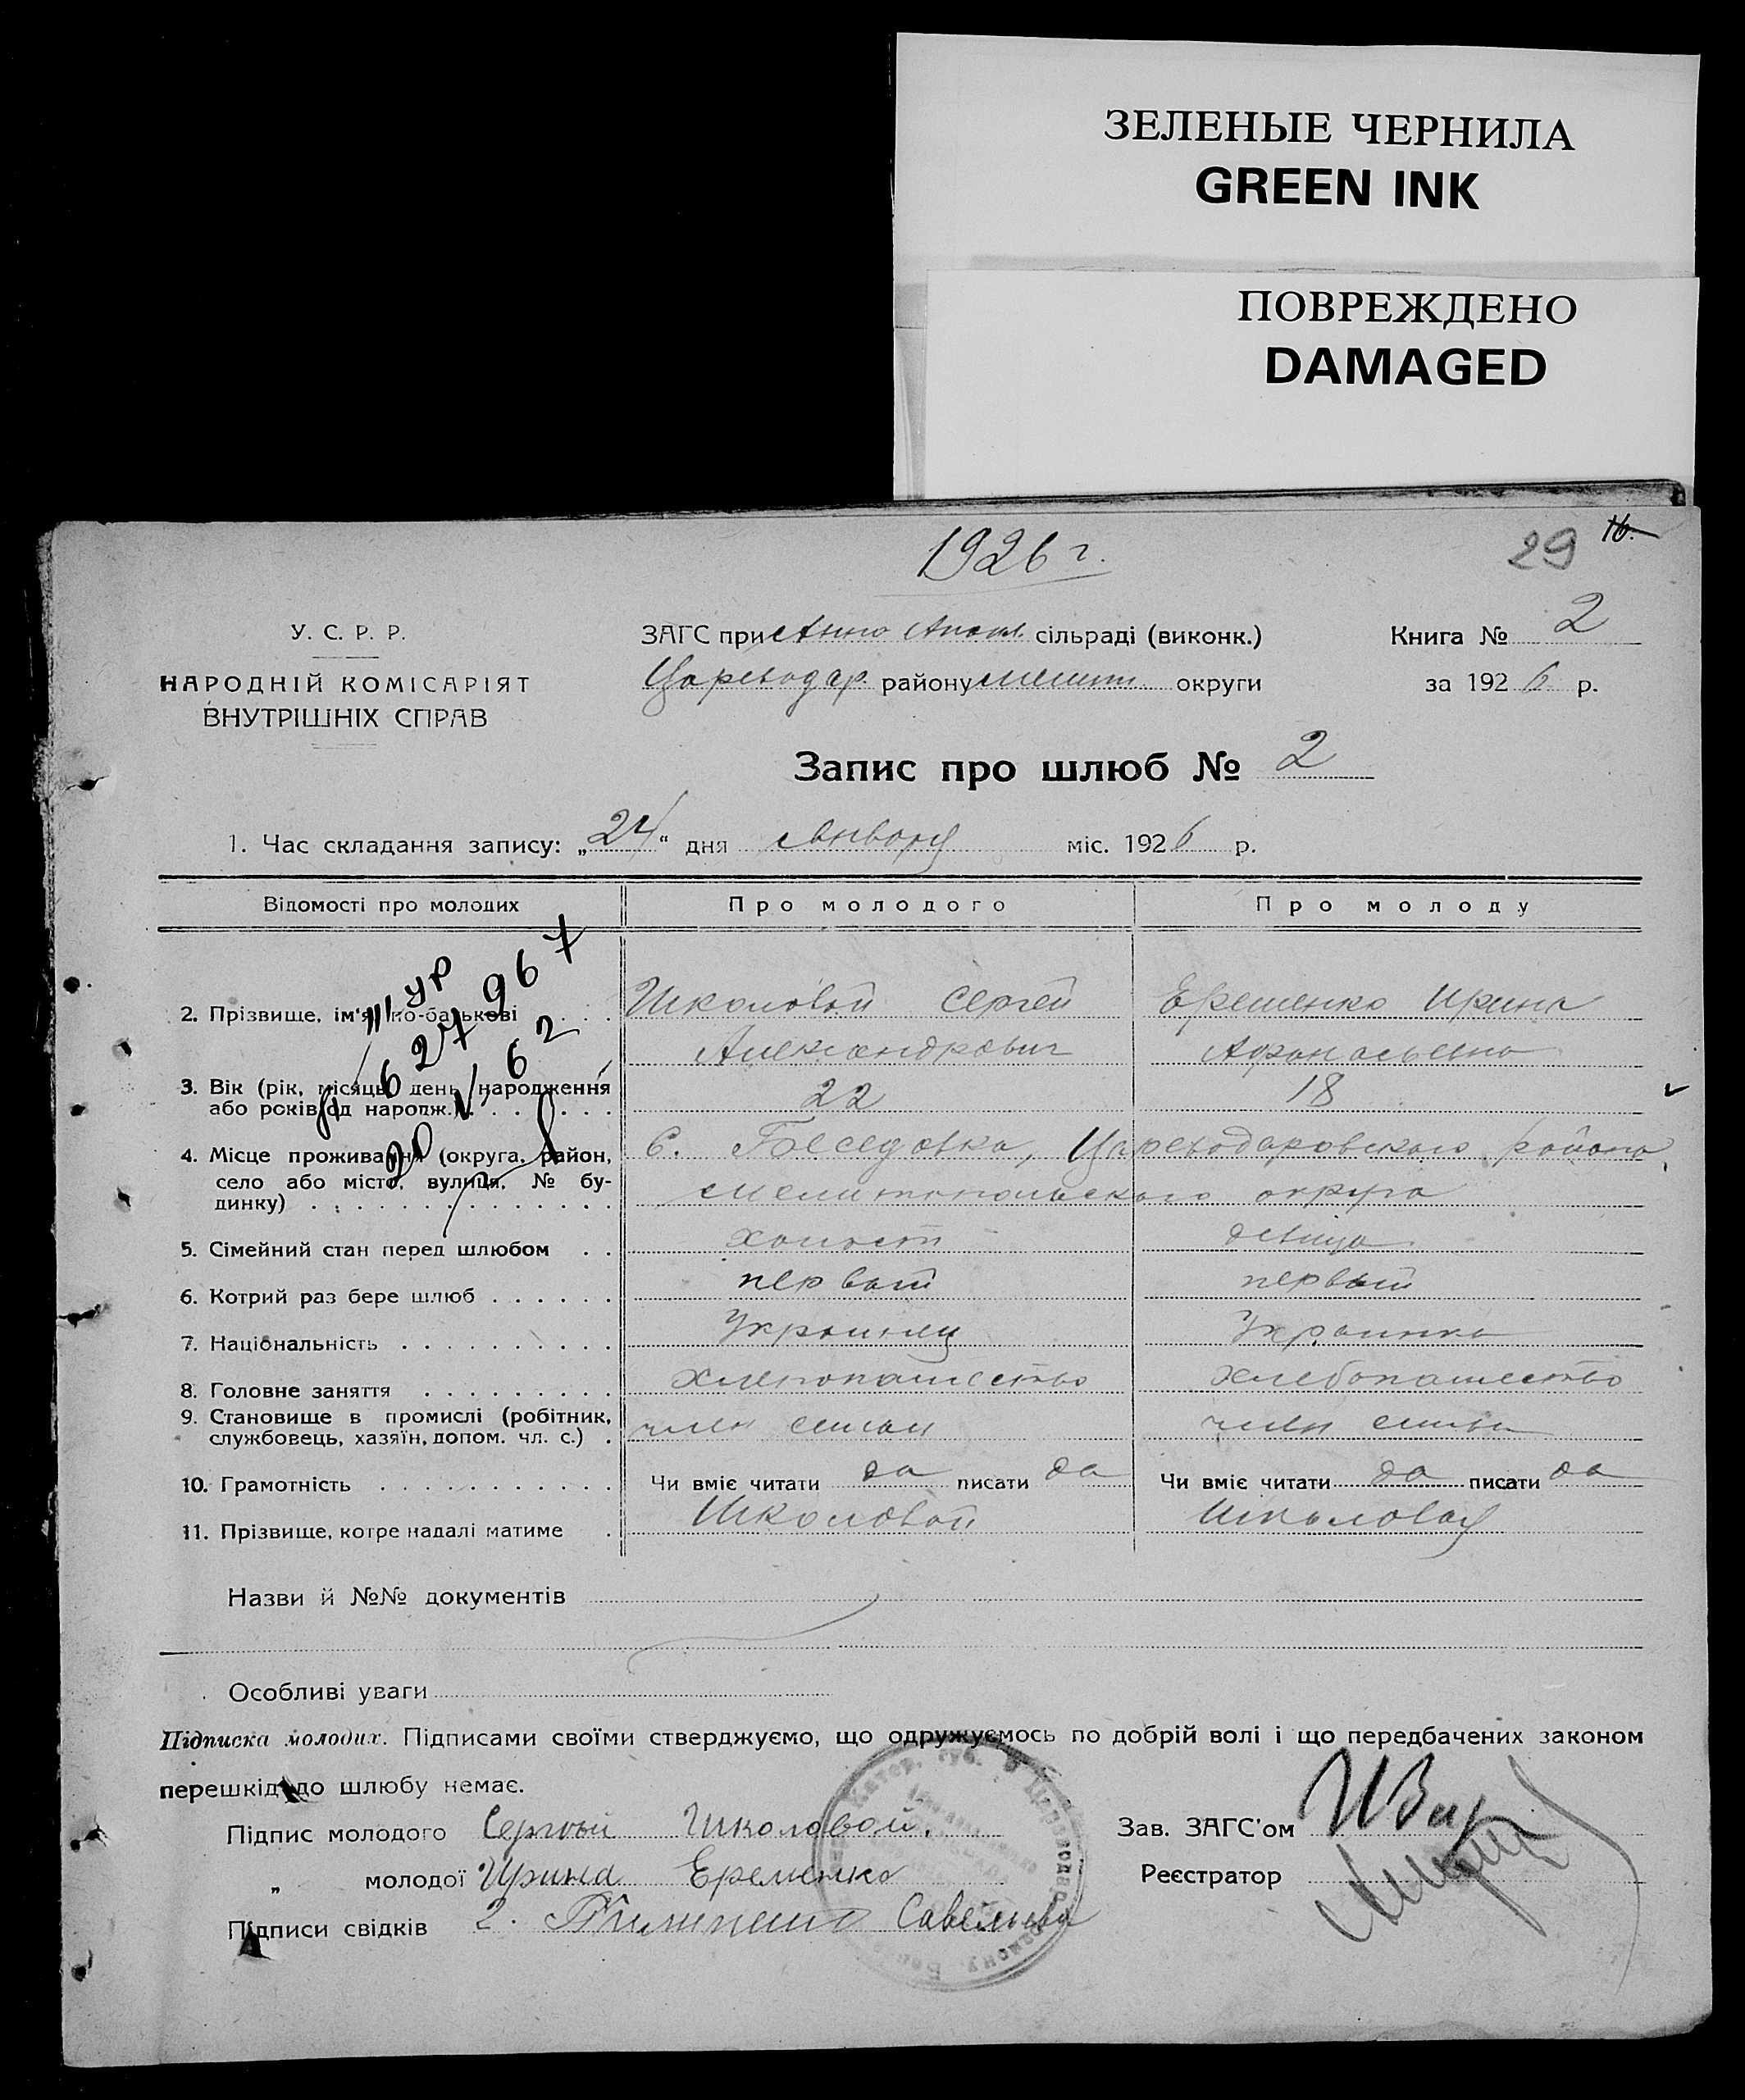 ЗЕЛЕНЫЕ ЧЕРНИЛА
GREEN INK
ПОВРЕЖДЕНО
DAMAGED
1926 г.
29 16.
У. С. Р. Р.
НАРОДНІЙ КОМІСАРІЯТ
ВНУТРІШНІХ СПРАВ
ЗАГС при Анно сільраді (виконк.)
Цареводар. району Мелит. округи
Книга № 2
за 1926 р.
Запис про шлюб № 2
1. Час складання запису: „24“ дня января міс. 1926 р.
Відомості про молодих Про молодого Про молоду
2. Прізвище, ім'я, по-батькові . . . Школовой Сергей Еременко Ирина
Александрович Афанасьевна
3. Вік (рік, місяць, день народження
або років од народж.) . . . . . . 22 18
4. Місце проживання (округа, район,
село або місто, вулиця, № бу-
динку) . . . . . . . . . . . . .
С. Беседовка, Цареводаровского района
Мелитопольского округа
5. Сімейний стан перед шлюбом . . холост девица
6. Котрий раз бере шлюб . . . . . . первый первый
7. Національність . . . . . . . . . . Украинец Украинка
8. Головне заняття . . . . . . . . . хлебопашество хлебопашество
9. Становище в промислі (робітник,
службовець, хазяїн, допом. чл. с.) . член семьи член семьи
10. Грамотність . . . . . . . . . . . Чи вміє читати да писати да Чи вміє читати да писати да
11. Прізвище, котре надалі матиме . Школовой Школовая
Назви й №№ документів
Особливі уваги
Підписка молодих. Підписами своїми стверджуємо, що одружуємось по добрій волі і що передбачених законом
перешкід до шлюбу немає.
Підпис молодого Сергъй Школовой.
„ молодої Ирина Еременко
Підписи свідків 2.
Зав. ЗАГС'ом
Реєстратор